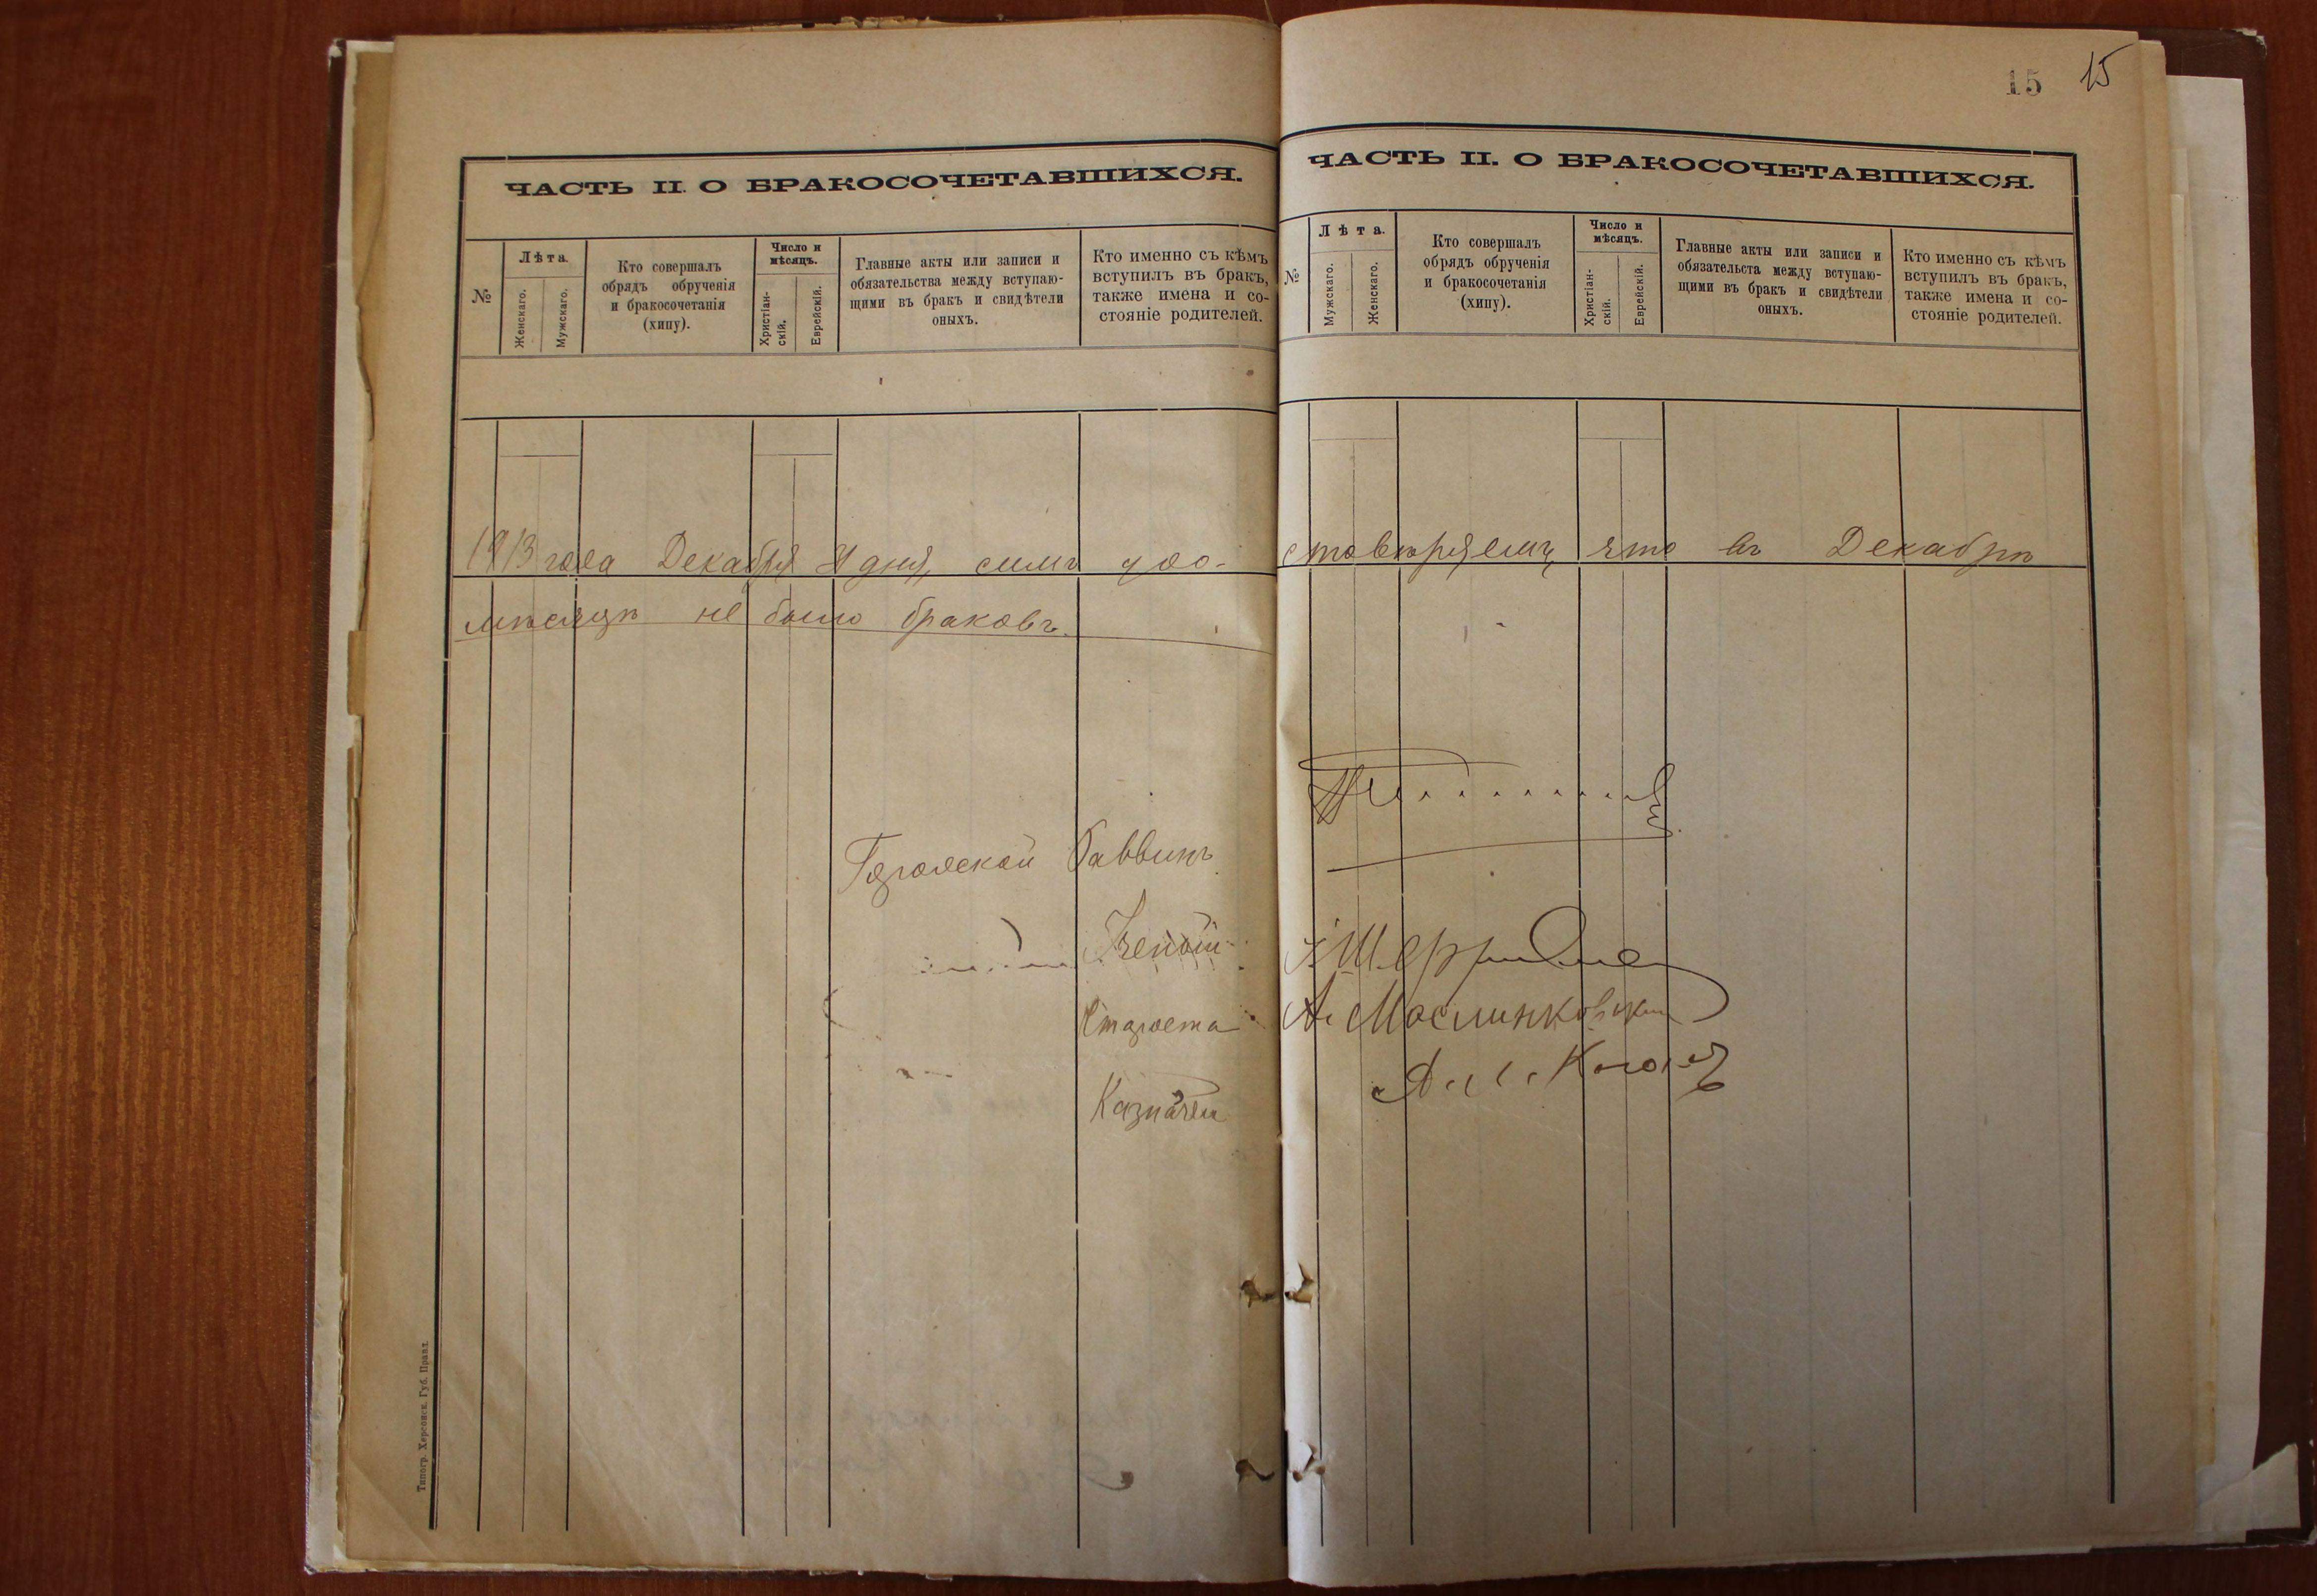 15 15
ЧАСТЬ II. О БРАКОСОЧЕТАВШИХСЯ.
№
Лѣта.
Женскаго.
Мужскаго.
Кто совершалъ
обрядъ обрученія
и бракосочетанія
(хипу).
Число и
мѣсяцъ.
Христіан-
скій.
Еврейскій.
Главные акты или записи и
обязательства между вступаю-
щими въ бракъ и свидѣтели
оныхъ.
Кто именно съ кѣмъ
вступилъ въ бракъ,
также имена и со-
стояніе родителей.
ЧАСТЬ II. О БРАКОСОЧЕТАВШИХСЯ.
№
Лѣта.
Мужскаго.
Женскаго.
Кто совершалъ
обрядъ обрученія
и бракосочетанія
(хипу).
Число и
мѣсяцъ.
Христіан-
скій.
Еврейскій.
Главные акты или записи и
обязательста между вступаю-
щими въ бракъ и свидѣтели
оныхъ.
Кто именно съ кѣмъ
вступилъ въ бракъ,
также имена и со-
стояніе родителей.
1913 года Декабря дня, симъ удо-стовѣряемъ, что въ Декабрѣ
мѣсяцѣ не было браковъ.
Городской Раввинъ
Ученый
Староста А. Маслинковскій
Казначей
Типогр. Херсонск. Губ. Правл.